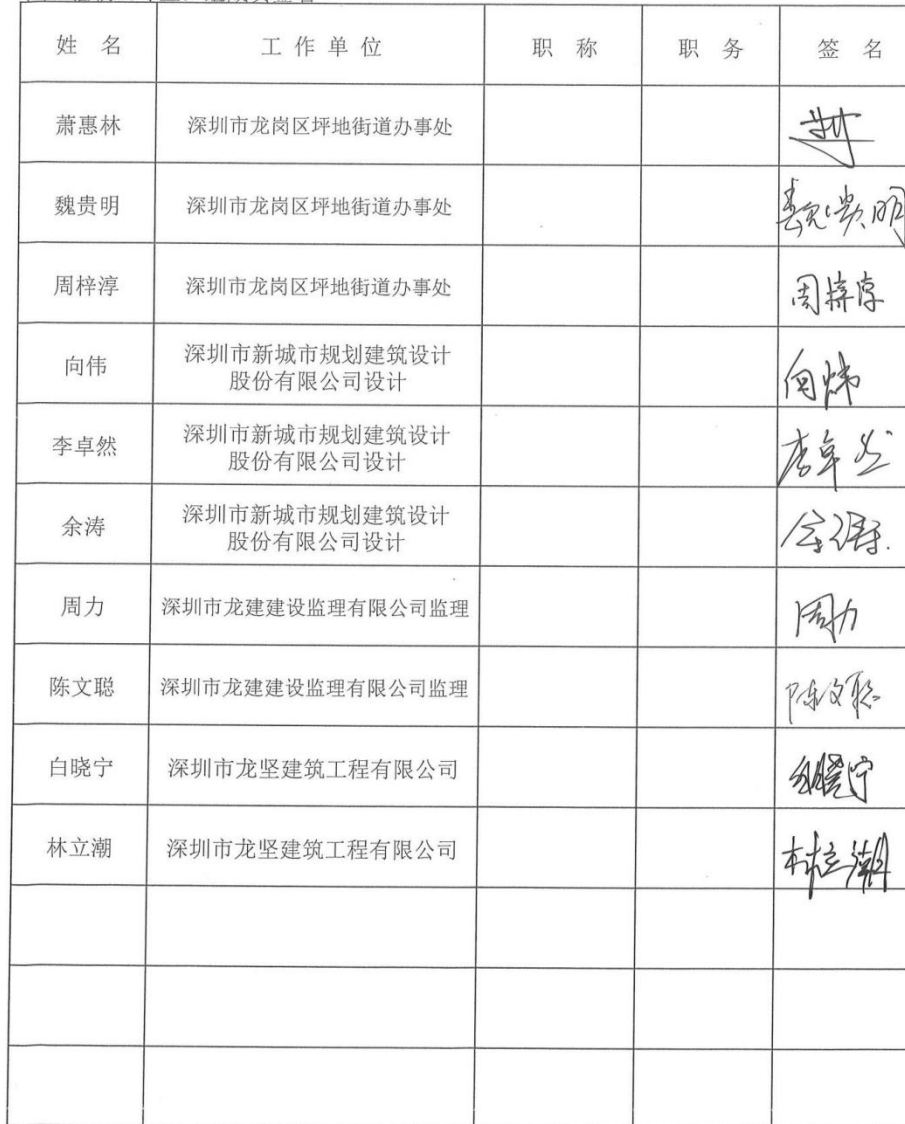 姓 名 工 作 单 位 职 称 职 务 签 名
萧惠林 深圳市龙岗区坪地街道办事处
魏贵明 深圳市龙岗区坪地街道办事处 魏贵明
周梓淳 深圳市龙岗区坪地街道办事处 周梓淳
向伟 深圳市新城市规划建筑设计
股份有限公司设计 向炜
李卓然 深圳市新城市规划建筑设计
股份有限公司设计 李卓然
余涛 深圳市新城市规划建筑设计
股份有限公司设计 余涛
周力 深圳市龙建建设监理有限公司监理 周力
陈文聪 深圳市龙建建设监理有限公司监理 陈文聪
白晓宁 深圳市龙坚建筑工程有限公司 白晓宁
林立潮 深圳市龙坚建筑工程有限公司 林立潮